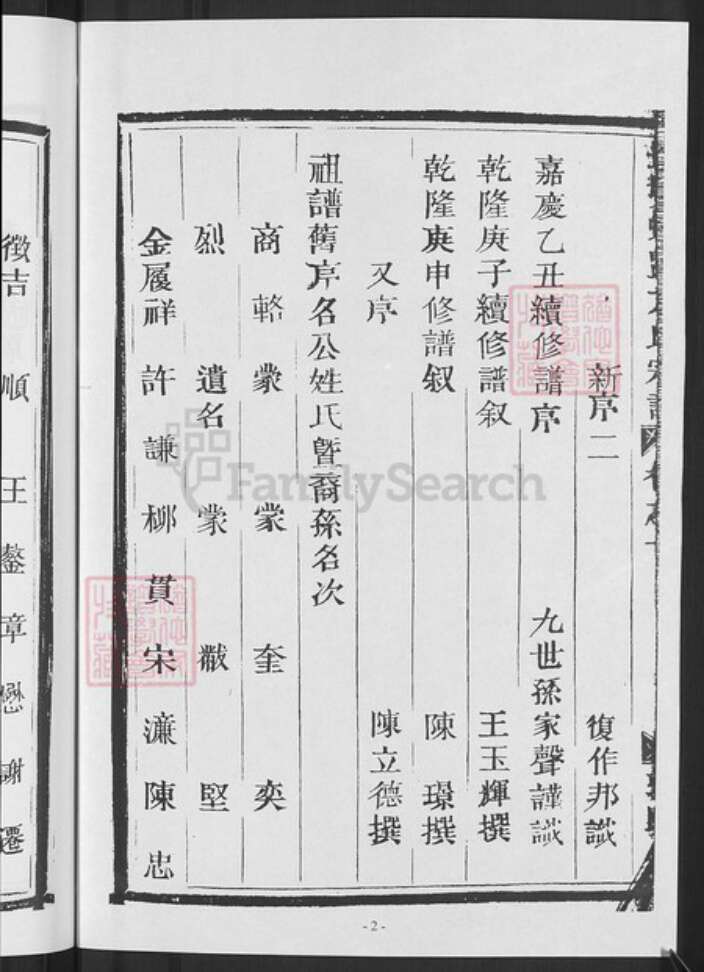 新序二 復作邦識
嘉慶乙丑續修譜序 九世孫家聲謹識
乾隆庚子續修譜叙 王玉輝撰
乾隆庚申修譜叙 陳璟撰
又序 陳立德撰
祖譜舊序名公姓氏曁裔孫名次
商輅 蒙 蒙 奎 奕
烈 遺名 蒙 黻 堅
金履祥 許謙 柳貫 宋濂 陳忠
徵吉 順 王鏊 章懋 謝遷
FamilySearch
- 2 -